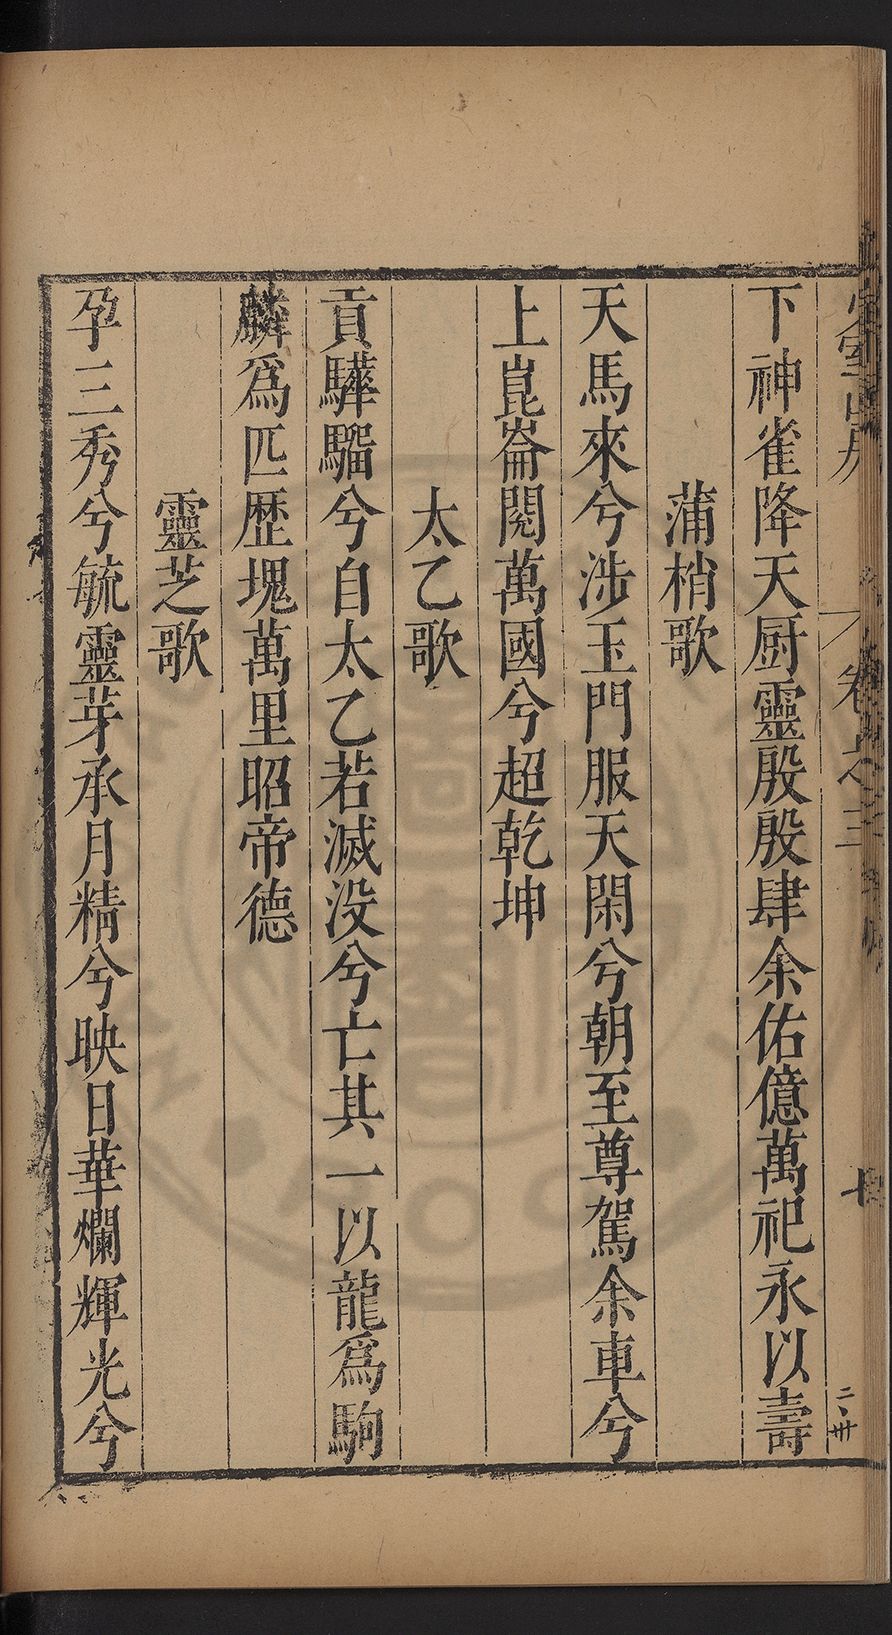 卷之三
下神雀降天厨靈殷殷肆余佑億萬祀永以壽
蒲梢歌
天馬來兮涉玉門服天閑兮朝至尊駕余車兮
上崑崙閱萬國兮超乾坤
太乙歌
貢驊騮兮自太乙若滅没兮亡其一以龍爲駒
麟爲匹歷塊萬里昭帝德
靈芝歌
孕三秀兮毓靈芽承月精兮映日華爛輝光兮